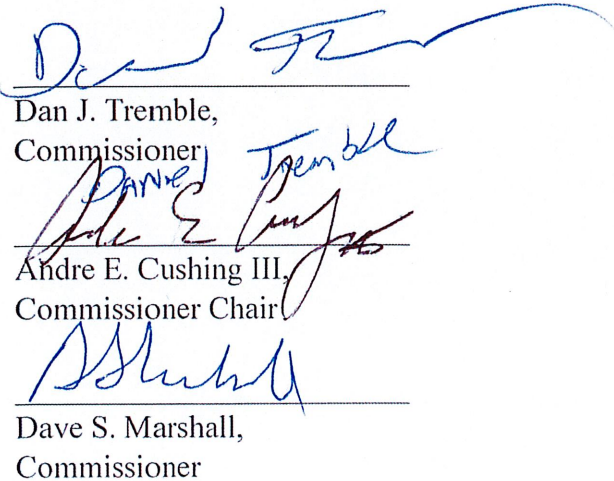 Dan J. Tremble,
Commissioner
Daniel Tremble
Andre E. Cushing III,
Commissioner Chair
Dave S. Marshall,
Commissioner